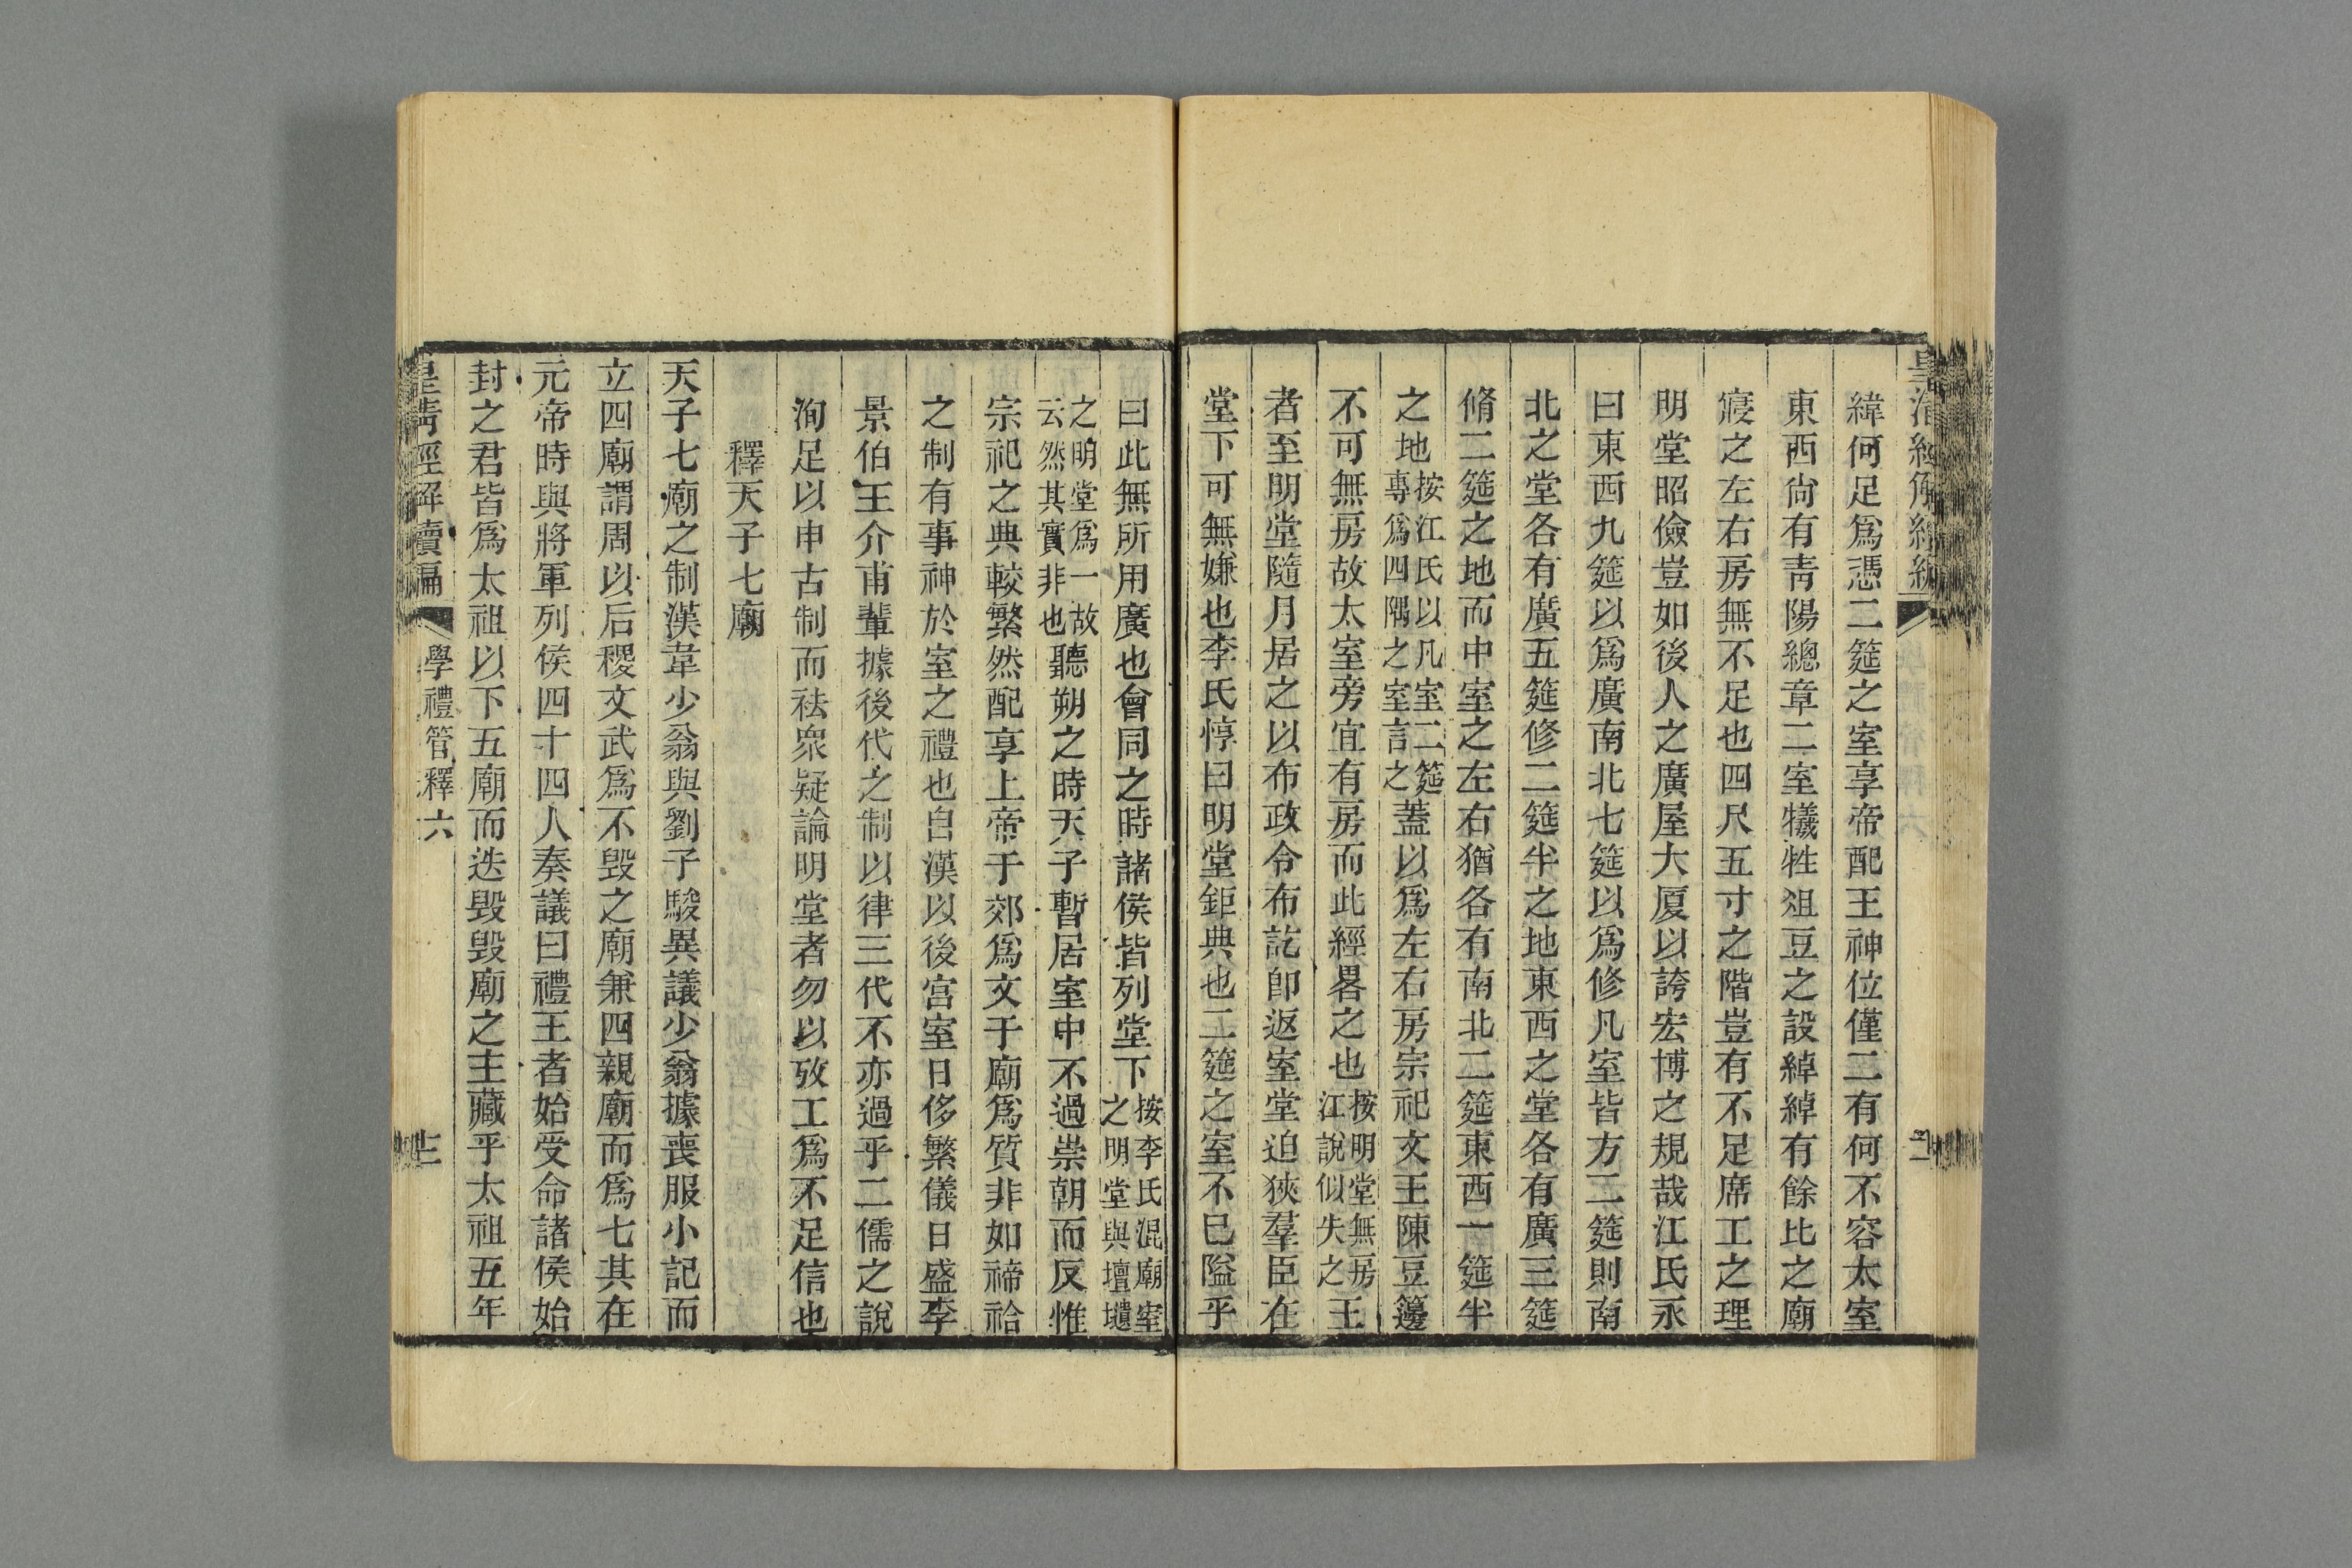 緯何足爲憑二筵之室享帝配王神位僅二有何不容太室
東西尙有靑陽總章二室犧牲俎豆之設綽綽有餘比之廟
寢之左右房無不足也四尺五寸之階豈有不足席工之理
明堂昭儉豈如後人之廣屋大厦以誇宏博之規哉江氏永
曰東西九筵以爲廣南北七筵以爲修凡室皆方二筵則南
北之堂各有廣五筵修二筵半之地東西之堂各有廣三筵
脩二筵之地而中室之左右猶各有南北二筵東西一筵半
之地按江氏以凡室二筵專爲四隅之室言之蓋以爲左右房宗祀文王陳豆籩
不可無房故太室旁宜有房而此經畧之也按明堂無房江說似失之王
者至明堂隨月居之以布政令布訖卽返室堂迫狹羣臣在
堂下可無嫌也李氏惇曰明堂鉅典也二筵之室不已隘乎
曰此無所用廣也會同之時諸侯皆列堂下按李氏混廟室之明堂與壇壝
之明堂爲一故云然其實非也聽朔之時天子暫居室中不過崇朝而反惟
宗祀之典較繁然配享上帝于郊爲文于廟爲質非如禘祫
之制有事神於室之禮也自漢以後宫室日侈繁儀日盛李
景伯王介甫輩據後代之制以律三代不亦過乎二儒之說
洵足以申古制而祛衆疑論明堂者勿以攷工爲不足信也
釋天子七廟
天子七廟之制漢韋少翁與劉子駿異議少翁據喪服小記而
立四廟謂周以后稷文武爲不毀之廟兼四親廟而爲七其在
元帝時與將軍列侯四十四人奏議曰禮王者始受命諸侯始
封之君皆爲太祖以下五廟而迭毀毀廟之主藏乎太祖五年
皇淸經解續編 學禮管釋六 十二